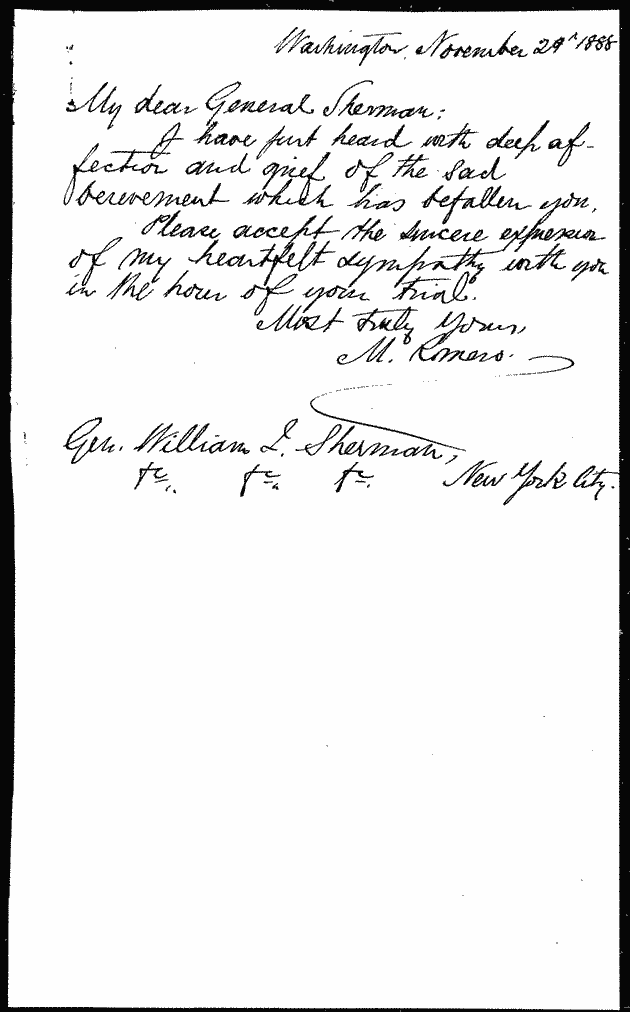 Washington, November 29th 1888
My dear General Sherman:
I have just heard with deep af-
fection and grief of the sad
berevement which has befallen you.
Please accept the sincere expression
of my heartfelt sympathy with you
in the hour of your trial.
Most truly yours,
M. Romero.
Gen. William T. Sherman,
&c., &c., &c. New York City.